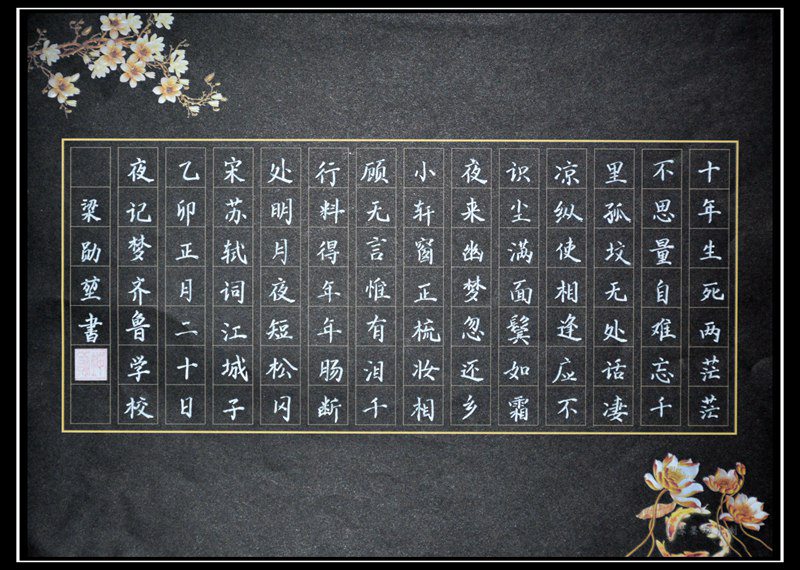 十年生死两茫茫
不思量自难忘千
里孤坟无处话凄
凉纵使相逢应不
识尘满面鬓如霜
夜来幽梦忽还乡
小轩窗正梳妆相
顾无言惟有泪千
行料得年年肠断
处明月夜短松冈
宋苏轼词江城子
乙卯正月二十日
夜记梦齐鲁学校
梁勋堃書